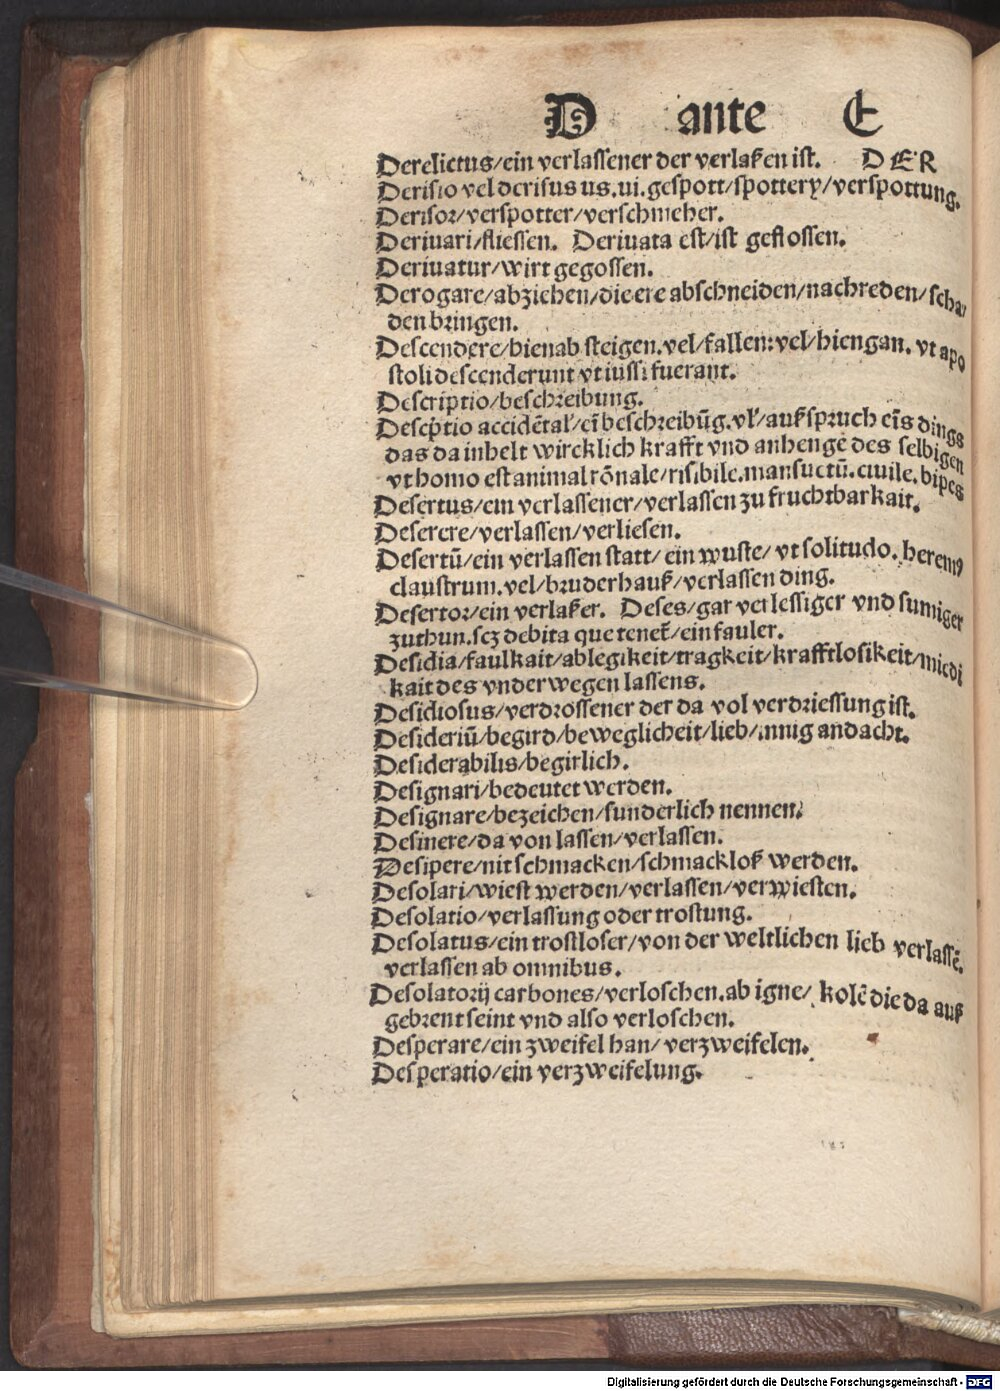 D ante E
Derelictus/ein verlassener der verlaßen ist. DER
Derisio vel derisus us.ui.gespott/spottery/verspottung.
Derisor/verspotter/verschmeher.
Deriuari/fliessen. Deriuata est/ist geflossen.
Deriuatur/wirt gegossen.
Derogare/abziehen/die ere abschneiden/nachreden/scha/
den bringen.
Descendere/hienab steigen.vel/fallen:vel/hiengan. vt apo
stoli descenderunt vt iussi fuerant.
Descriptio/beschreibung.
Descp̄tio accidētal'/eī beschreibūg.vl'/außspruch eīs dings
das da inhelt wircklich krafft vnd anhengē des selbigen
vt homo est animal rōnale/risibile.mansuetū.ciuile.bipes
Desertus/ein verlassener/verlassen zu fruchtbarkait.
Deserere/verlassen/verliesen.
Desertū/ein verlassen statt/ ein wuste/ vt solitudo. heremꝰ
claustrum.vel/bruderhauß/verlassen ding.
Desertor/ein verlaßer. Deses/gar verlessiger vnd sumiger
zuthun.scz debita que tenet̄/ein fauler.
Desidia/faulkait/ablegikeit/tragkeit/krafftlosikeit/miedi
kait des vnderwegen lassens.
Desidiosus/verdrossener der da vol verdriessung ist.
Desideriū/begird/beweglicheit/lieb/innig andacht.
Desiderabilis/begirlich.
Designari/bedeutet werden.
Designare/bezeichen/sunderlich nennen.
Desinere/da von lassen/verlassen.
Desipere/nit schmacken/schmackloß werden.
Desolari/wiest werden/verlassen/verwiesten.
Desolatio/verlassung oder trostung.
Desolatus/ein trostloser/von der weltlichen lieb verlassē.
verlassen ab omnibus.
Desolatorij carbones/verloschen.ab igne/ kolē die da auß
gebrent seint vnd also verloschen.
Desperare/ein zweifel han/ verzweifelen.
Desperatio/ein verzweifelung.
Digitalisierung gefördert durch die Deutsche Forschungsgemeinschaft - DFG